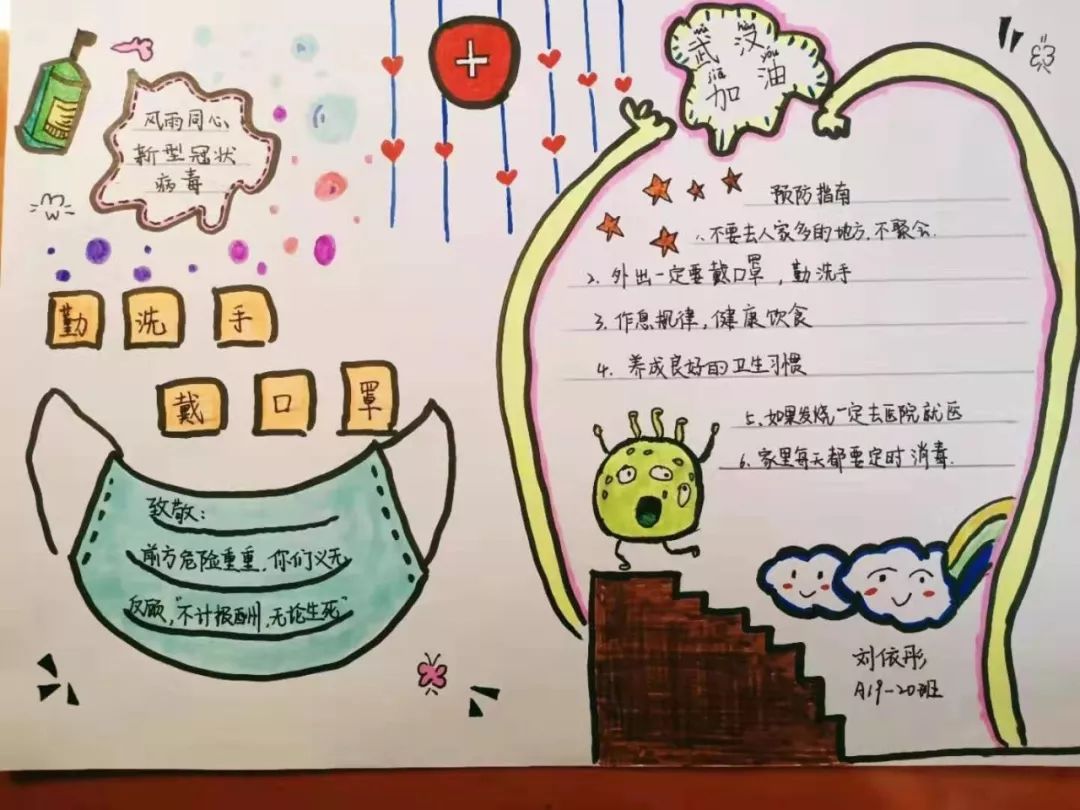 风雨同心、
新型冠状
病毒
勤洗手
戴口罩
致敬：
前方危险重重，你们义无
反顾，"不计报酬，无论生死"
wǔ hàn
武汉
jiā yóu
加油
预防指南
1、不要去人家多的地方，不聚会.
2、外出一定要戴口罩，勤洗手
3、作息规律，健康饮食
4、养成良好的卫生习惯
5、如果发烧一定去医院就医
6、家里每天都要定时消毒.
刘依彤
A19-20班